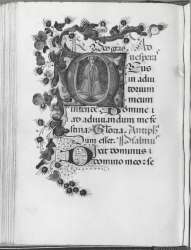 Deo gras. Ad
uespera
Deus
in adiu
torium
meum
intende Domine
ad adiuuandum me fe
stina Gloria Antiph
Dum esset. Psalmus
Dixit dominus
Domino meo: se